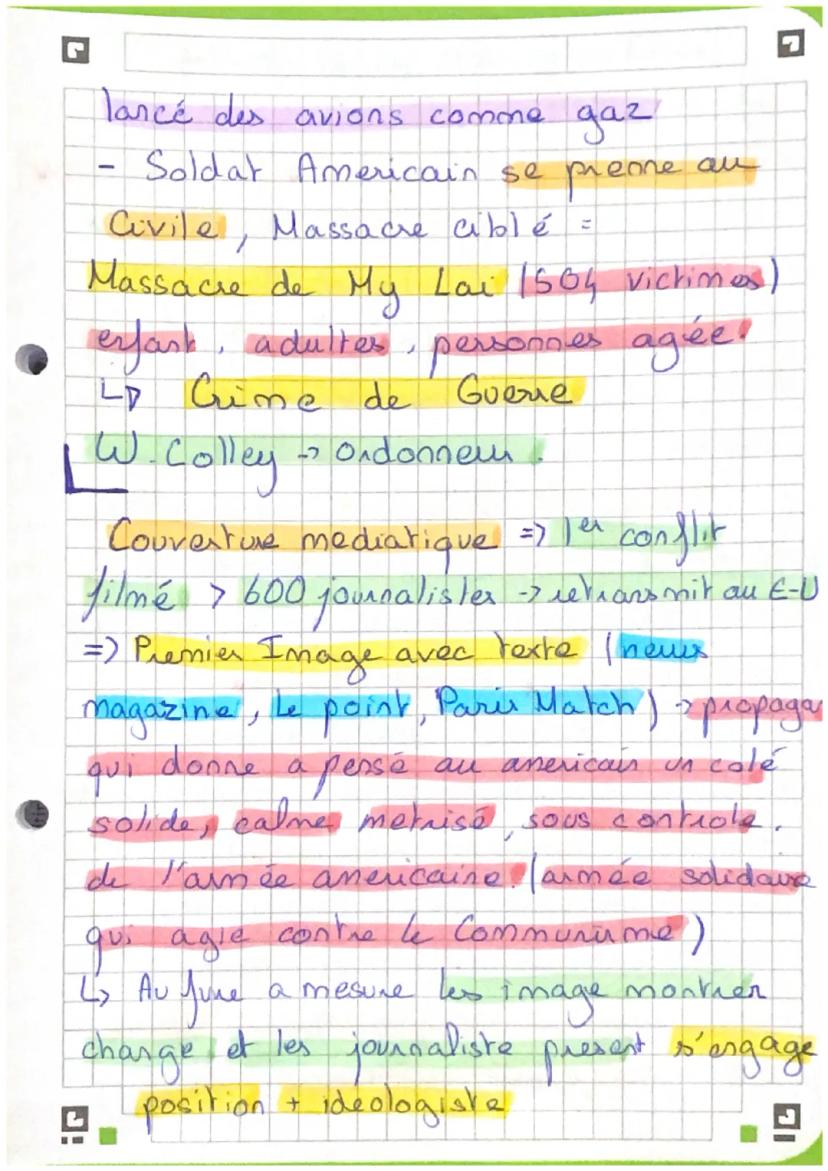 lancé des avions comme gaz
- Soldat Americain se prenne au
Civile, Massacre ciblé =
Massacre de My Lai (504 victimes)
enfant, adultes, personnes agée.
↳ Crime de Guerre
W. Colley -> Ordonneur.
Couverture mediatique => 1er conflit
filmé > 600 journalistes -> retransmit au E-U
=> Premier Image avec texte (news
magazine, Le point, Paris Match) -> propaga
qui donne a pensé au americain un coté
solide, calme metrisé, sous controle.
de l'armée americaine. (armée solidaire
qui agie contre le Communisme)
↳ Au fure a mesure les image montrer
change et les journaliste present s'engage
position + ideologiste